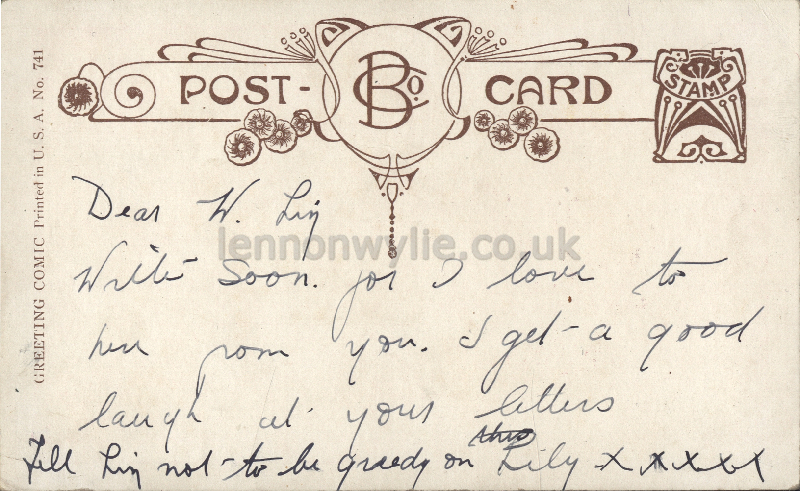 POST- BCo. CARD
STAMP
GREETING COMIC Printed in U. S. A. No. 741
lennonwylie.co.uk
Dear W. Liz
Write soon. for I love to
her from you. I get a good
laugh at your letters
Tell Liz not to be greedy on Lily x x x x x